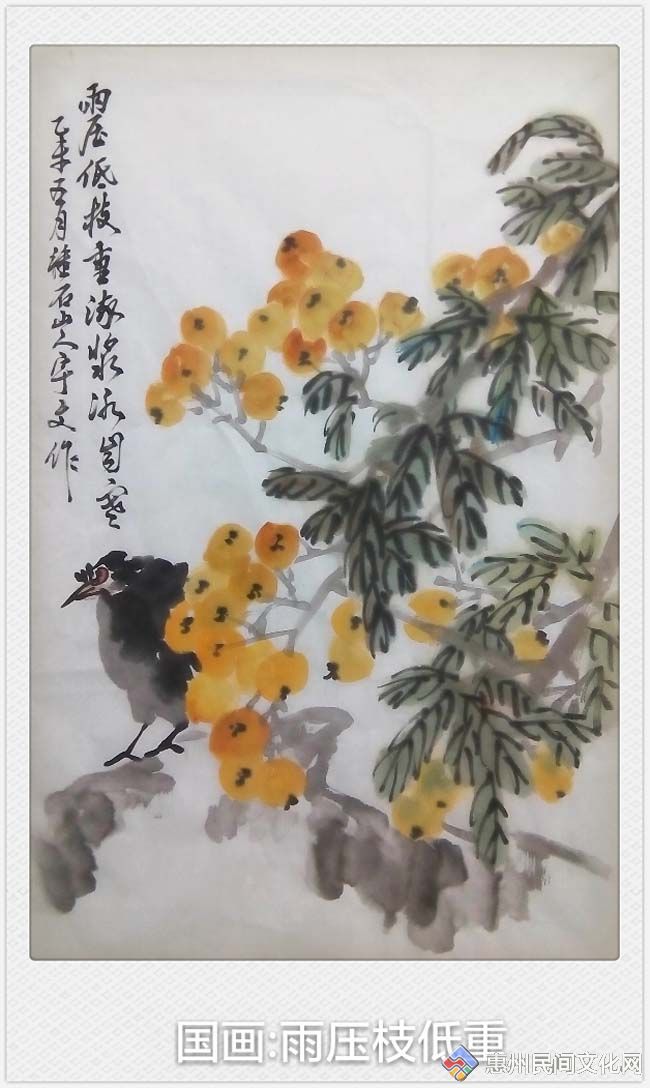 雨压低枝重浆冰齿寒
乙未五月石山人宇文作
国画:雨压枝低重
惠州民间文化网